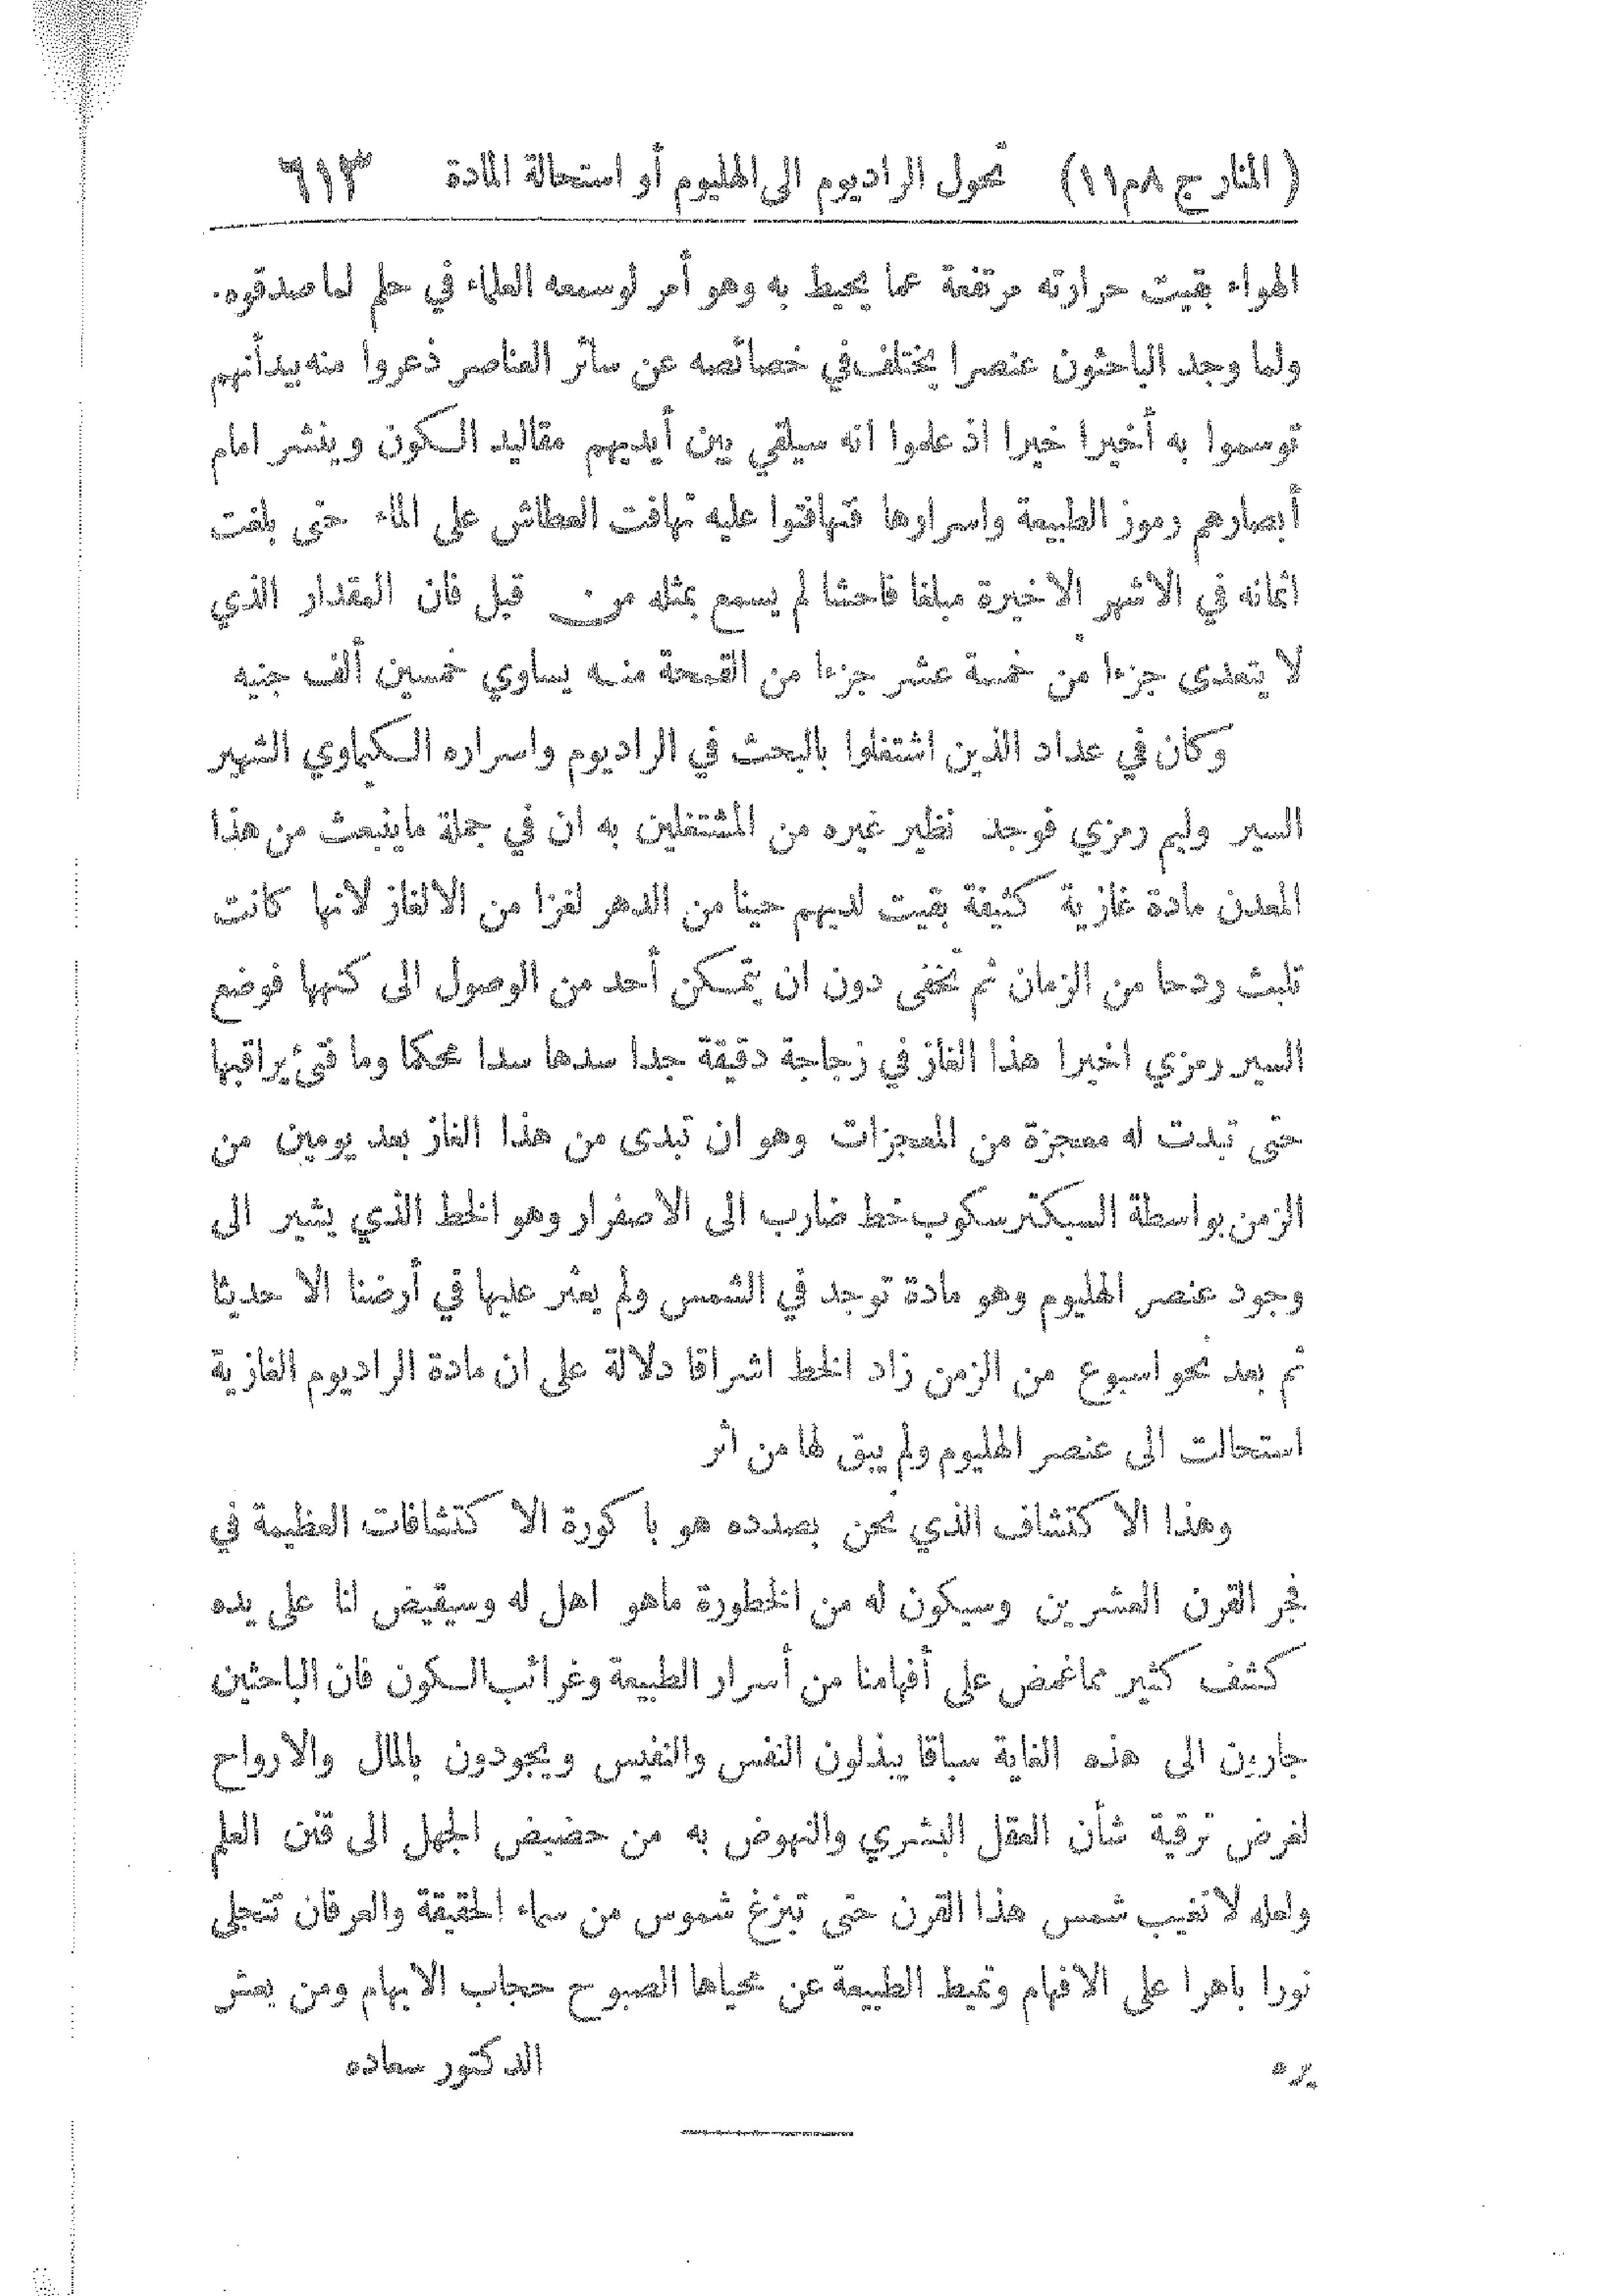 ( المنار ج ٨ م ١١ ) تحول الراديوم الى الهليوم أو استحالة المادة ٦١٣
الهواء بقيت حرارته مرتفعة عما يحيط به وهو أمر لوسمعه العلماء في حلم لما صدقوه.
ولما وجد الباحثون عنصرا يختلف في خصائصه عن سائر العناصر ذعروا منه بيد أنهم
توسموا به أخيرا خيرا اذ علموا انه سيلقي بين أيديهم مقاليد الكون وينشر امام
أبصارهم رموز الطبيعة واسرارها فتهافتوا عليه تهافت العطاش على الماء حتى بلغت
اثمانه في الاشهر الاخيرة مبلغا فاحشا لم يسمع بمثله من قبل فان المقدار الذي
لا يتعدى جزءا من خمسة عشر جزءا من القمحة منه يساوي خمسين ألف جنيه
وكان في عداد الذين اشتغلوا بالبحث في الراديوم واسراره الكيماوي الشهير
السير وليم رمزي فوجد نظير غيره من المشتغلين به ان في جملة ماينبعث من هذا
المعدن مادة غازية كثيفة بقيت لديهم حينا من الدهر لغزا من الالغاز لانها كانت
تلبث ردحا من الزمان ثم تختفى دون ان يتمكن أحد من الوصول الى كنهها فوضع
السير رمزي اخيرا هذا الغاز في زجاجة دقيقة جدا سدها سدا محكما وما فتئ يراقبها
حتى تبدت له معجزة من المعجزات وهو ان تبدى من هذا الغاز بعد يومين من
الزمن بواسطة السبكترسكوب خط ضارب الى الاصفرار وهو الخط الذي يشير الى
وجود عنصر الهليوم وهو مادة توجد في الشمس ولم يعثر عليها في أرضنا الا حديثا
ثم بعد نحو اسبوع من الزمن زاد الخط اشراقا دلالة على ان مادة الراديوم الغازية
استحالت الى عنصر الهليوم ولم يبق لها من اثر
وهذا الاكتشاف الذي نحن بصدده هو باكورة الاكتشافات العظيمة في
فجر القرن العشرين وسيكون له من الخطورة ماهو اهل له وسيقيض لنا على يده
كشف كثير مما غمض على أفهامنا من أسرار الطبيعة وغرائب الكون فان الباحثين
جارون الى هذه الغاية سباقا يبذلون النفس والنفيس ويجودون بالمال والارواح
لغرض ترقية شأن العقل البشري والنهوض به من حضيض الجهل الى قنن العلم
ولعله لا تغيب شمس هذا القرن حتى تبزغ شموس من سماء الحقيقة والعرفان تتجلى
نورا باهرا على الافهام وتميط الطبيعة عن محياها الصبوح حجاب الابهام ومن يعش
يره الدكتور سعاده